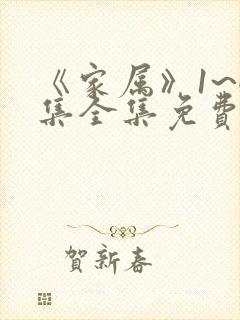 《家属》1~
集全集免费
賀新春